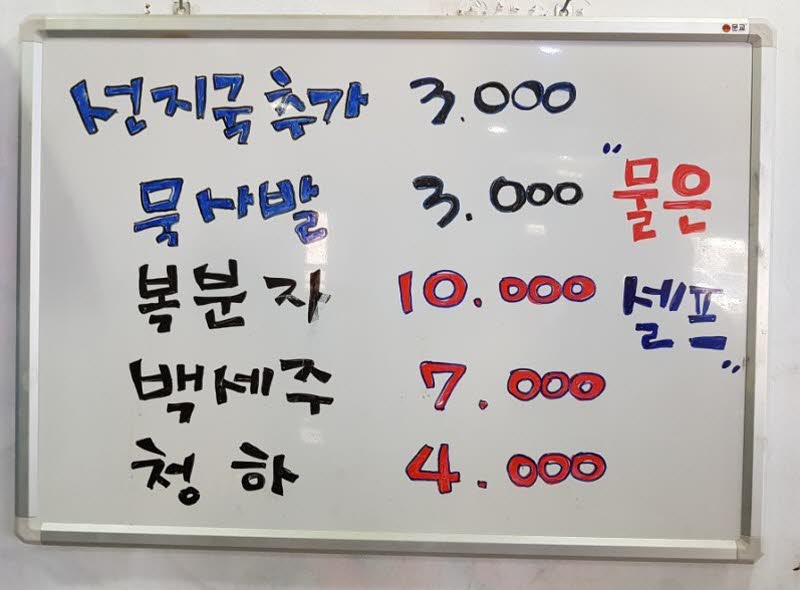 문교
선지국추가 3.000
묵사발 3.000
복분자 10.000
백세주 7.000
청하 4.000
"물은
셀프"